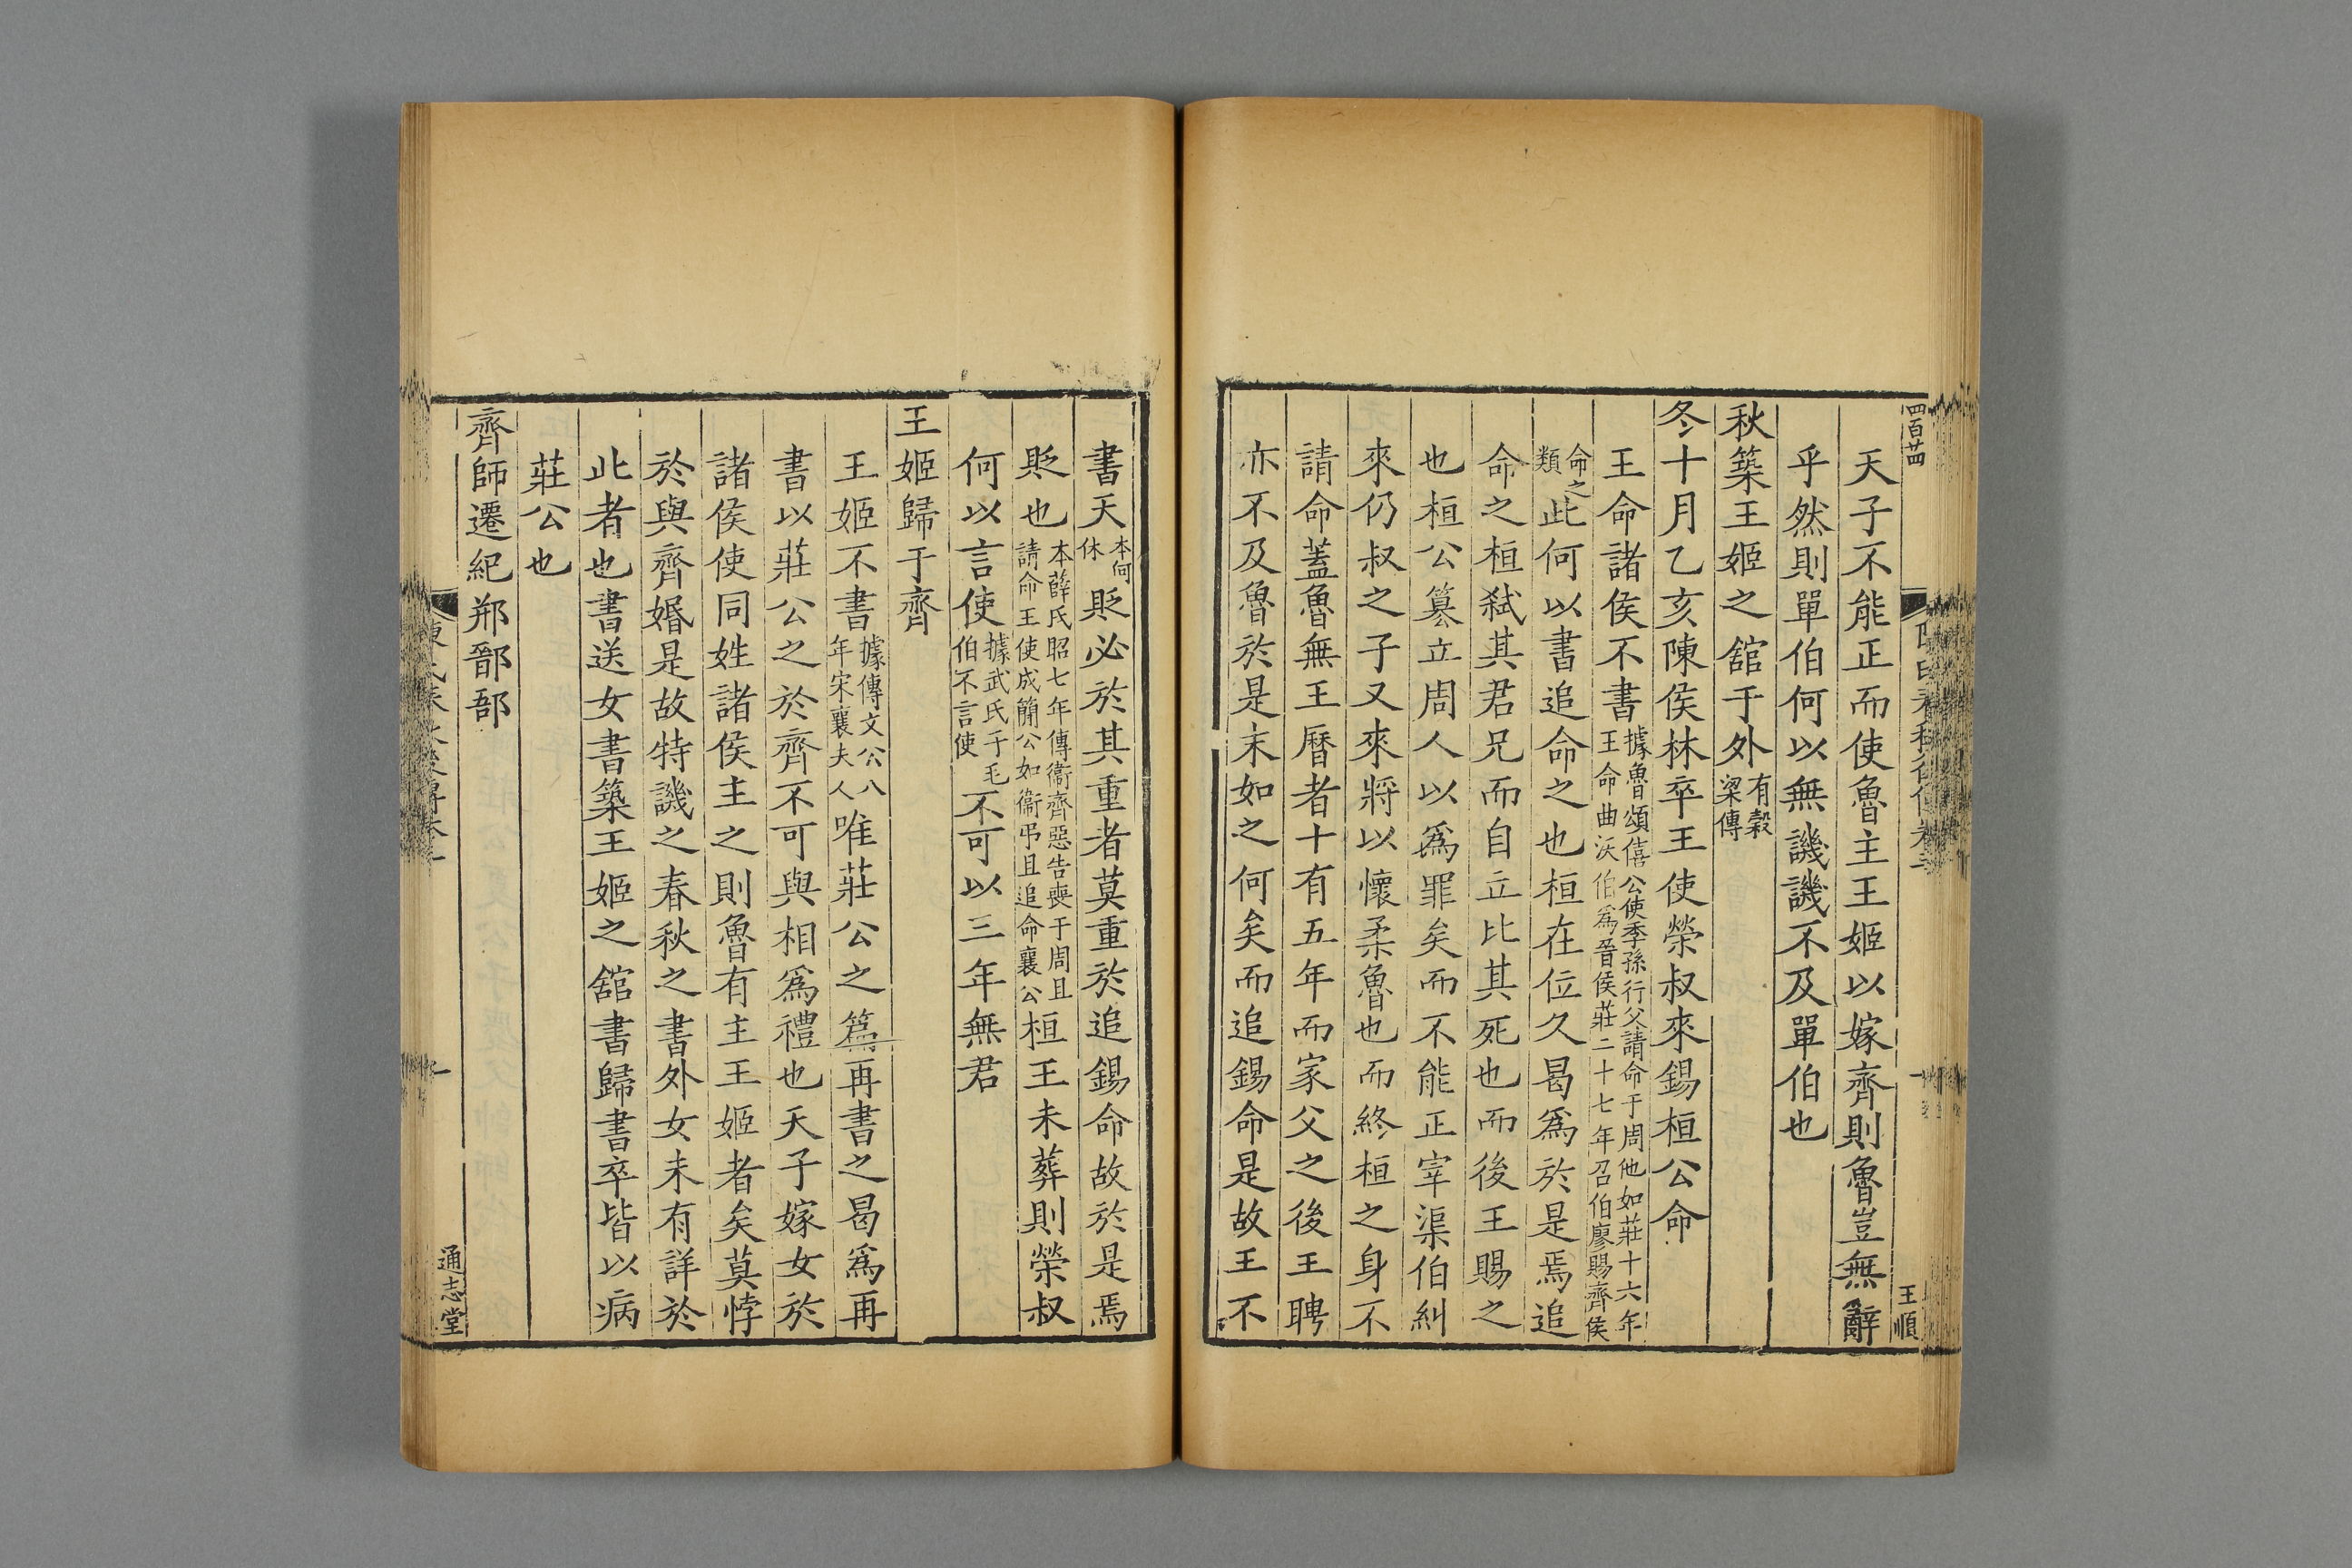 四百廿四
王順
天子不能正而使魯主王姬以嫁齊則魯豈無辭
乎然則單伯何以無譏譏不及單伯也
秋築王姬之舘于外有穀梁傳
冬十月乙亥陳侯林卒王使榮叔來錫桓公命
王命諸侯不書據魯頌僖公使季孫行父請命于周他如莊十六年王命曲沃伯爲晉侯莊二十七年召伯廖賜齊侯
命之類此何以書追命之也桓在位久曷爲於是焉追
命之桓弑其君兄而自立比其死也而後王賜之
也桓公簒立周人以爲罪矣而不能正宰渠伯糾
來仍叔之子又來將以懷柔魯也而終桓之身不
請命蓋魯無王曆者十有五年而家父之後王聘
亦不及魯於是末如之何矣而追錫命是故王不
書天本何休貶必於其重者莫重於追錫命故於是焉
貶也本薛氏昭七年傳衞齊惡告喪于周且請命王使成簡公如衞弔且追命襄公桓王未葬則榮叔
何以言使據武氏子毛伯不言使不可以三年無君
王姬歸于齊
王姬不書據傳文公八年宋襄夫人唯莊公之篇再書之曷爲再
書以莊公之於齊不可與相爲禮也天子嫁女於
諸侯使同姓諸侯主之則魯有主王姬者矣莫悖
於與齊婚是故特譏之春秋之書外女未有詳於
此者也書送女書築王姬之舘書歸書卒皆以病
莊公也
齊師遷紀郱鄑郚
通志堂